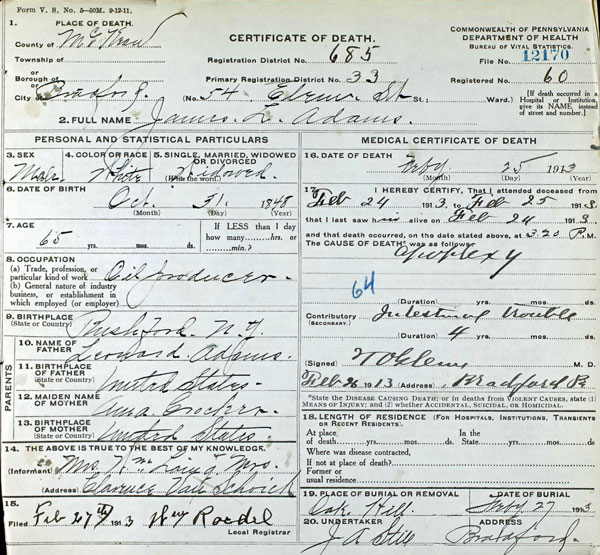 Form V. S. No. 5—50M. 9-12-11.
1. PLACE OF DEATH.
County of McKean
Township of
or
Borough of
or
City of Bradford.
CERTIFICATE OF DEATH.
Registration District No. 685
Primary Registration District No. 33
(No. 54 St.; Ward.)
COMMONWEALTH OF PENNSYLVANIA
DEPARTMENT OF HEALTH
BUREAU OF VITAL STATISTICS.
File No. 12170
Registered No. 60
[If death occurred in a Hospital or Institution, give its NAME instead of street and number.]
2. FULL NAME James L. Adams.
PERSONAL AND STATISTICAL PARTICULARS
3. SEX
Male
4. COLOR OR RACE
White
5. SINGLE, MARRIED, WIDOWED OR DIVORCED
(Write the word.)
Widowed.
6. DATE OF BIRTH
Oct. 31. 1848
(Month) (Day) (Year)
7. AGE
65 yrs. mos. ds.
If LESS than 1 day how many hrs. or min.?
8. OCCUPATION
(a) Trade, profession, or particular kind of work
(b) General nature of industry business, or establishment in which employed (or employer)
Oil producer.
9. BIRTHPLACE
(State or Country)
Rushford. N.Y.
PARENTS
10. NAME OF FATHER
Leonard Adams.
11. BIRTHPLACE OF FATHER
(State or Country)
United States-
12. MAIDEN NAME OF MOTHER
Crocker.
13. BIRTHPLACE OF MOTHER
(State or Country)
United States
14. THE ABOVE IS TRUE TO THE BEST OF MY KNOWLEDGE.
(Informant) Mrs. Mrs.
(Address) Clarence
15.
Filed Feb 27th 1913 Wm Roedel
Local Registrar
MEDICAL CERTIFICATE OF DEATH
16. DATE OF DEATH
Feby 25 1913
(Month) (Day) (Year)
17. I HEREBY CERTIFY, That I attended deceased from
Feb 24 1913, to Feb 25 1913
that I last saw him alive on Feb 24 1913
and that death occurred, on the date stated above, at 3 20 P. M.
The CAUSE OF DEATH* was as follows:
Apoplexy
64
(Duration) yrs. mos. ds.
Contributory Intestinal trouble
(SECONDARY.)
(Duration) 4 yrs. mos. ds.
(Signed) M. D.
Feb 26 1913 (Address) Bradford Pa
*State the DISEASE CAUSING DEATH; or in deaths from VIOLENT CAUSES, state (1) MEANS OF INJURY; and (2) whether ACCIDENTAL, SUICIDAL, OR HOMICIDAL.
18. LENGTH OF RESIDENCE (FOR HOSPITALS, INSTITUTIONS, TRANSIENTS OR RECENT RESIDENTS).
At place of death yrs. mos. ds. In the State yrs. mos. ds.
Where was disease contracted,
if not at place of death?
Former or
usual residence
19. PLACE OF BURIAL OR REMOVAL
Oak Hill.
DATE OF BURIAL
Feby 27 1913
20. UNDERTAKER
J A Still
ADDRESS
Bradford.